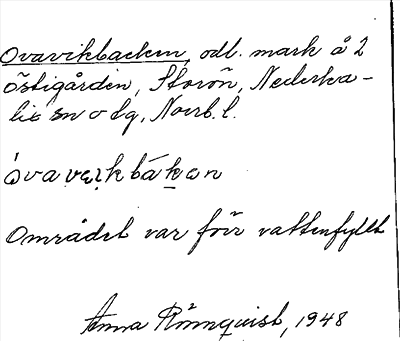 Ovavikbacken, odl. mark å 2
Östigården, Storön, Nederka-
lix sn o tg, Norrb. l.
óvavɩkbákan
Området var förr vattenfyllt
Anna Rönnquist, 1948